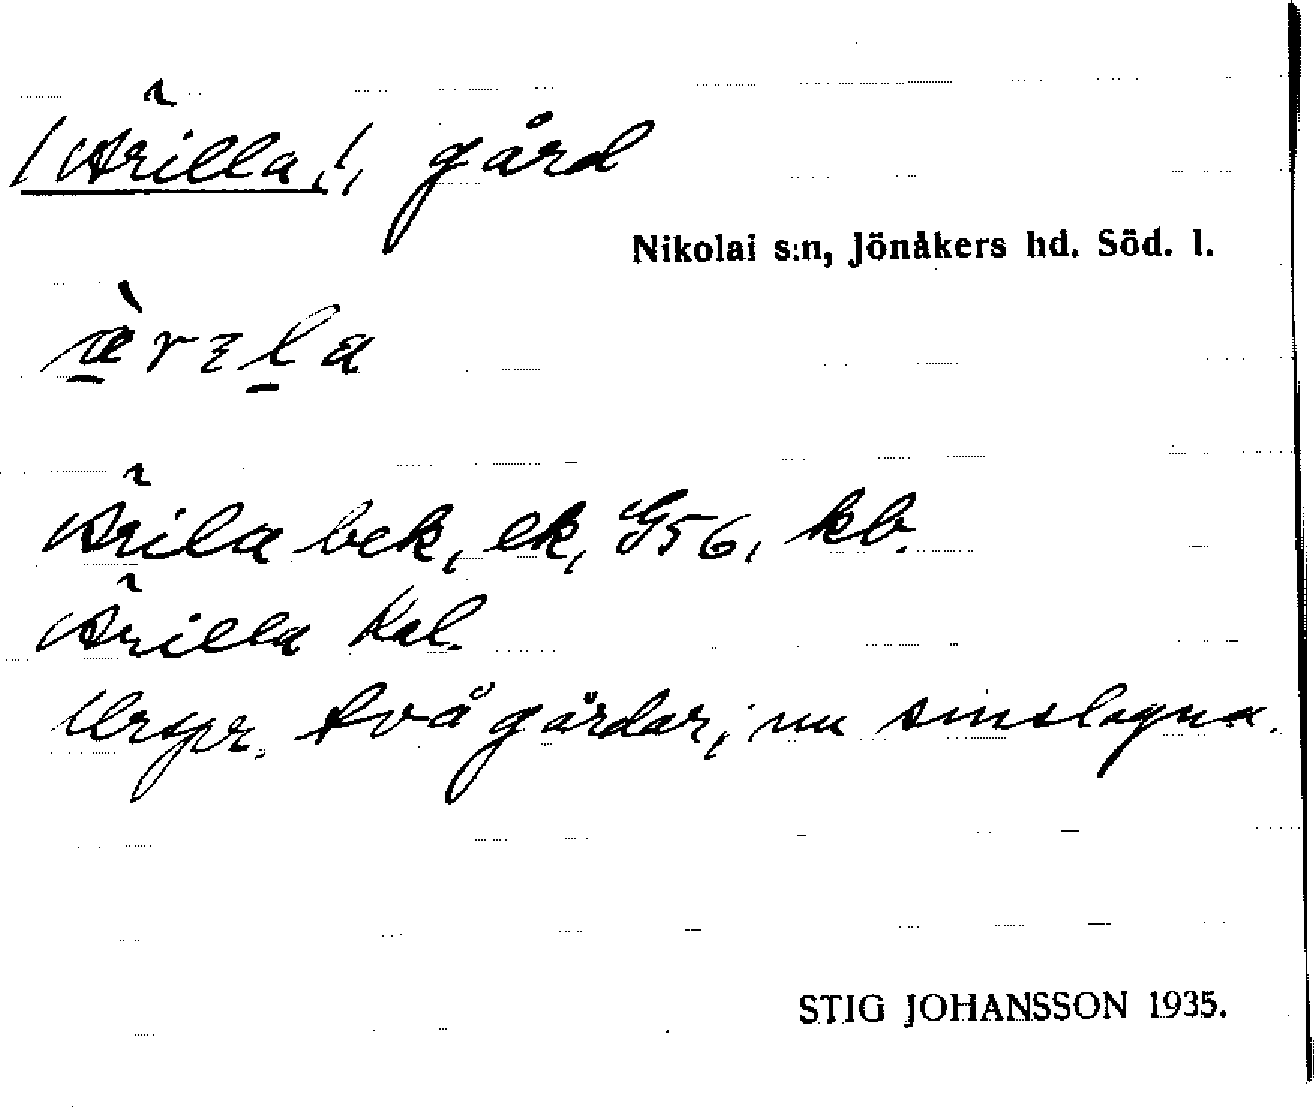 (Ärilla), gård
Nikolai s:n, Jönåkers hd. Söd. l.
æ̀rɩla
Ärila bek, ek, G56, kb.
Ärilla Kal.
Urspr. två gårdar; nu sinslagna.
STIG JOHANSSON 1935.